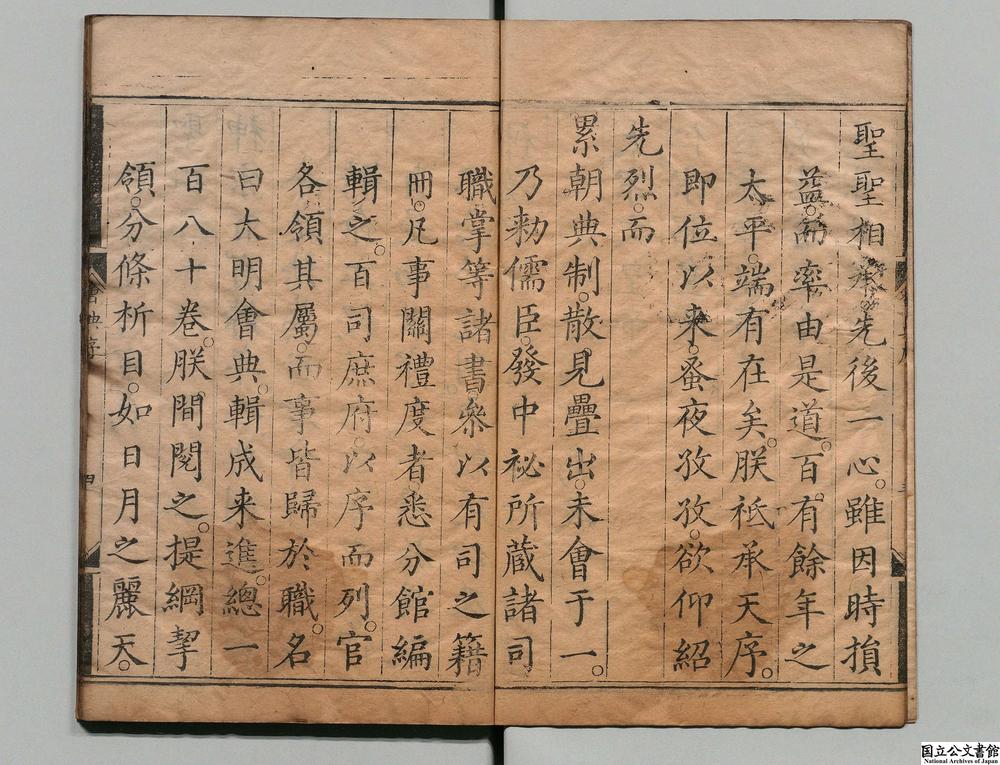 聖聖相承先後一心。雖因時損
益。而率由是道。百有餘年之
太平。端有在矣。朕祗承天序。
即位以来。蚤夜孜孜。欲仰紹
先烈。而
累朝典制。散見疊出。未會于一。
乃勑儒臣。發中祕所蔵諸司
職掌等諸書。叅以有司之籍
冊。凡事關禮度者。悉分館編
輯之。百司庶府。以序而列。官
各領其屬。而事皆歸於職。名
曰大明會典。輯成来進。總一
百八十卷。朕間閱之。提綱挈
領。分條析目。如日月之麗天。
會典序
四
国立公文書館
National Archives of Japan